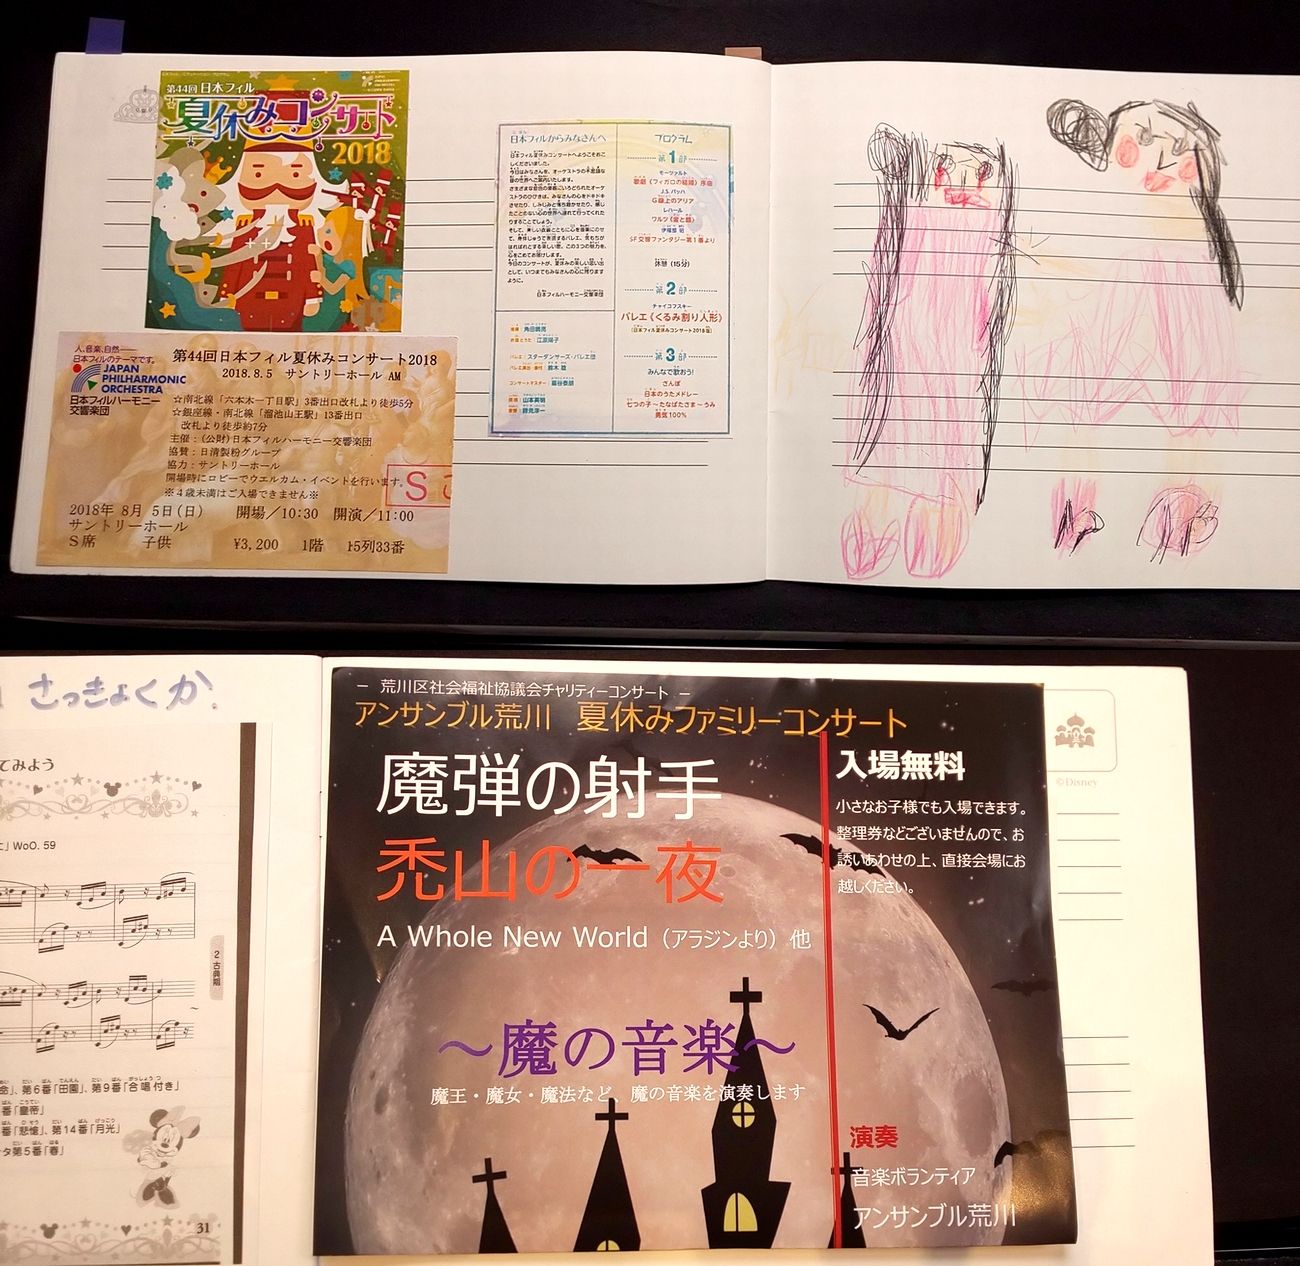 第44回 日本フィル
夏休みコンサート
2018
人、音楽、自然――
日本フィルのテーマです。
JAPAN
PHILHARMONIC
ORCHESTRA
日本フィルハーモニー
交響楽団
第44回日本フィル夏休みコンサート2018
2018.8.5 サントリーホール AM
☆南北線「六本木一丁目駅」3番出口改札より徒歩5分
☆銀座線・南北線「溜池山王駅」13番出口
改札より徒歩約7分
主催：(公財)日本フィルハーモニー交響楽団
協賛：日清製粉グループ
協力：サントリーホール
開場時にロビーでウエルカム・イベントを行います。
※４歳未満はご入場できません※
S
2018年 8月 5日(日) 開場／10:30 開演／11:00
サントリーホール
Ｓ席 子供 ¥3,200 1階 15列33番
日本フィルからみなさんへ
日本フィル夏休みコンサートへようこそお
こしくださいました。
日本フィルハーモニー交響楽団
プログラム
第1部
モーツァルト
歌劇《フィガロの結婚》序曲
J.S.バッハ
G線上のアリア
レハール
ワルツ《金と銀》
伊福部 昭
SF交響ファンタジー第1番より
休憩（15分）
第2部
チャイコフスキー
バレエ《くるみ割り人形》
(日本フィル夏休みコンサート2018版)
第3部
みんなで歌おう!
さんぽ
日本のうたメドレー
七つの子～たなばたさま～うみ
勇気100%
指揮：角田鋼亮
お話とうた：江原陽子
バレエ：スターダンサーズ・バレエ団
バレエ演出・振付：鈴木 稔
さっきょくか
てみよう
WoO. 59
2 古典期
第6番「田園」、第9番「合唱付き」
番「皇帝」
番「悲愴」、第14番「月光」
タ第5番「春」
31
― 荒川区社会福祉協議会チャリティーコンサート ―
アンサンブル荒川 夏休みファミリーコンサート
魔弾の射手
禿山の一夜
A Whole New World（アラジンより）他
～魔の音楽～
魔王・魔女・魔法など、魔の音楽を演奏します
入場無料
小さなお子様でも入場できます。
整理券などございませんので、お
誘いあわせの上、直接会場にお
越しください。
演奏
音楽ボランティア
アンサンブル荒川
©Disney